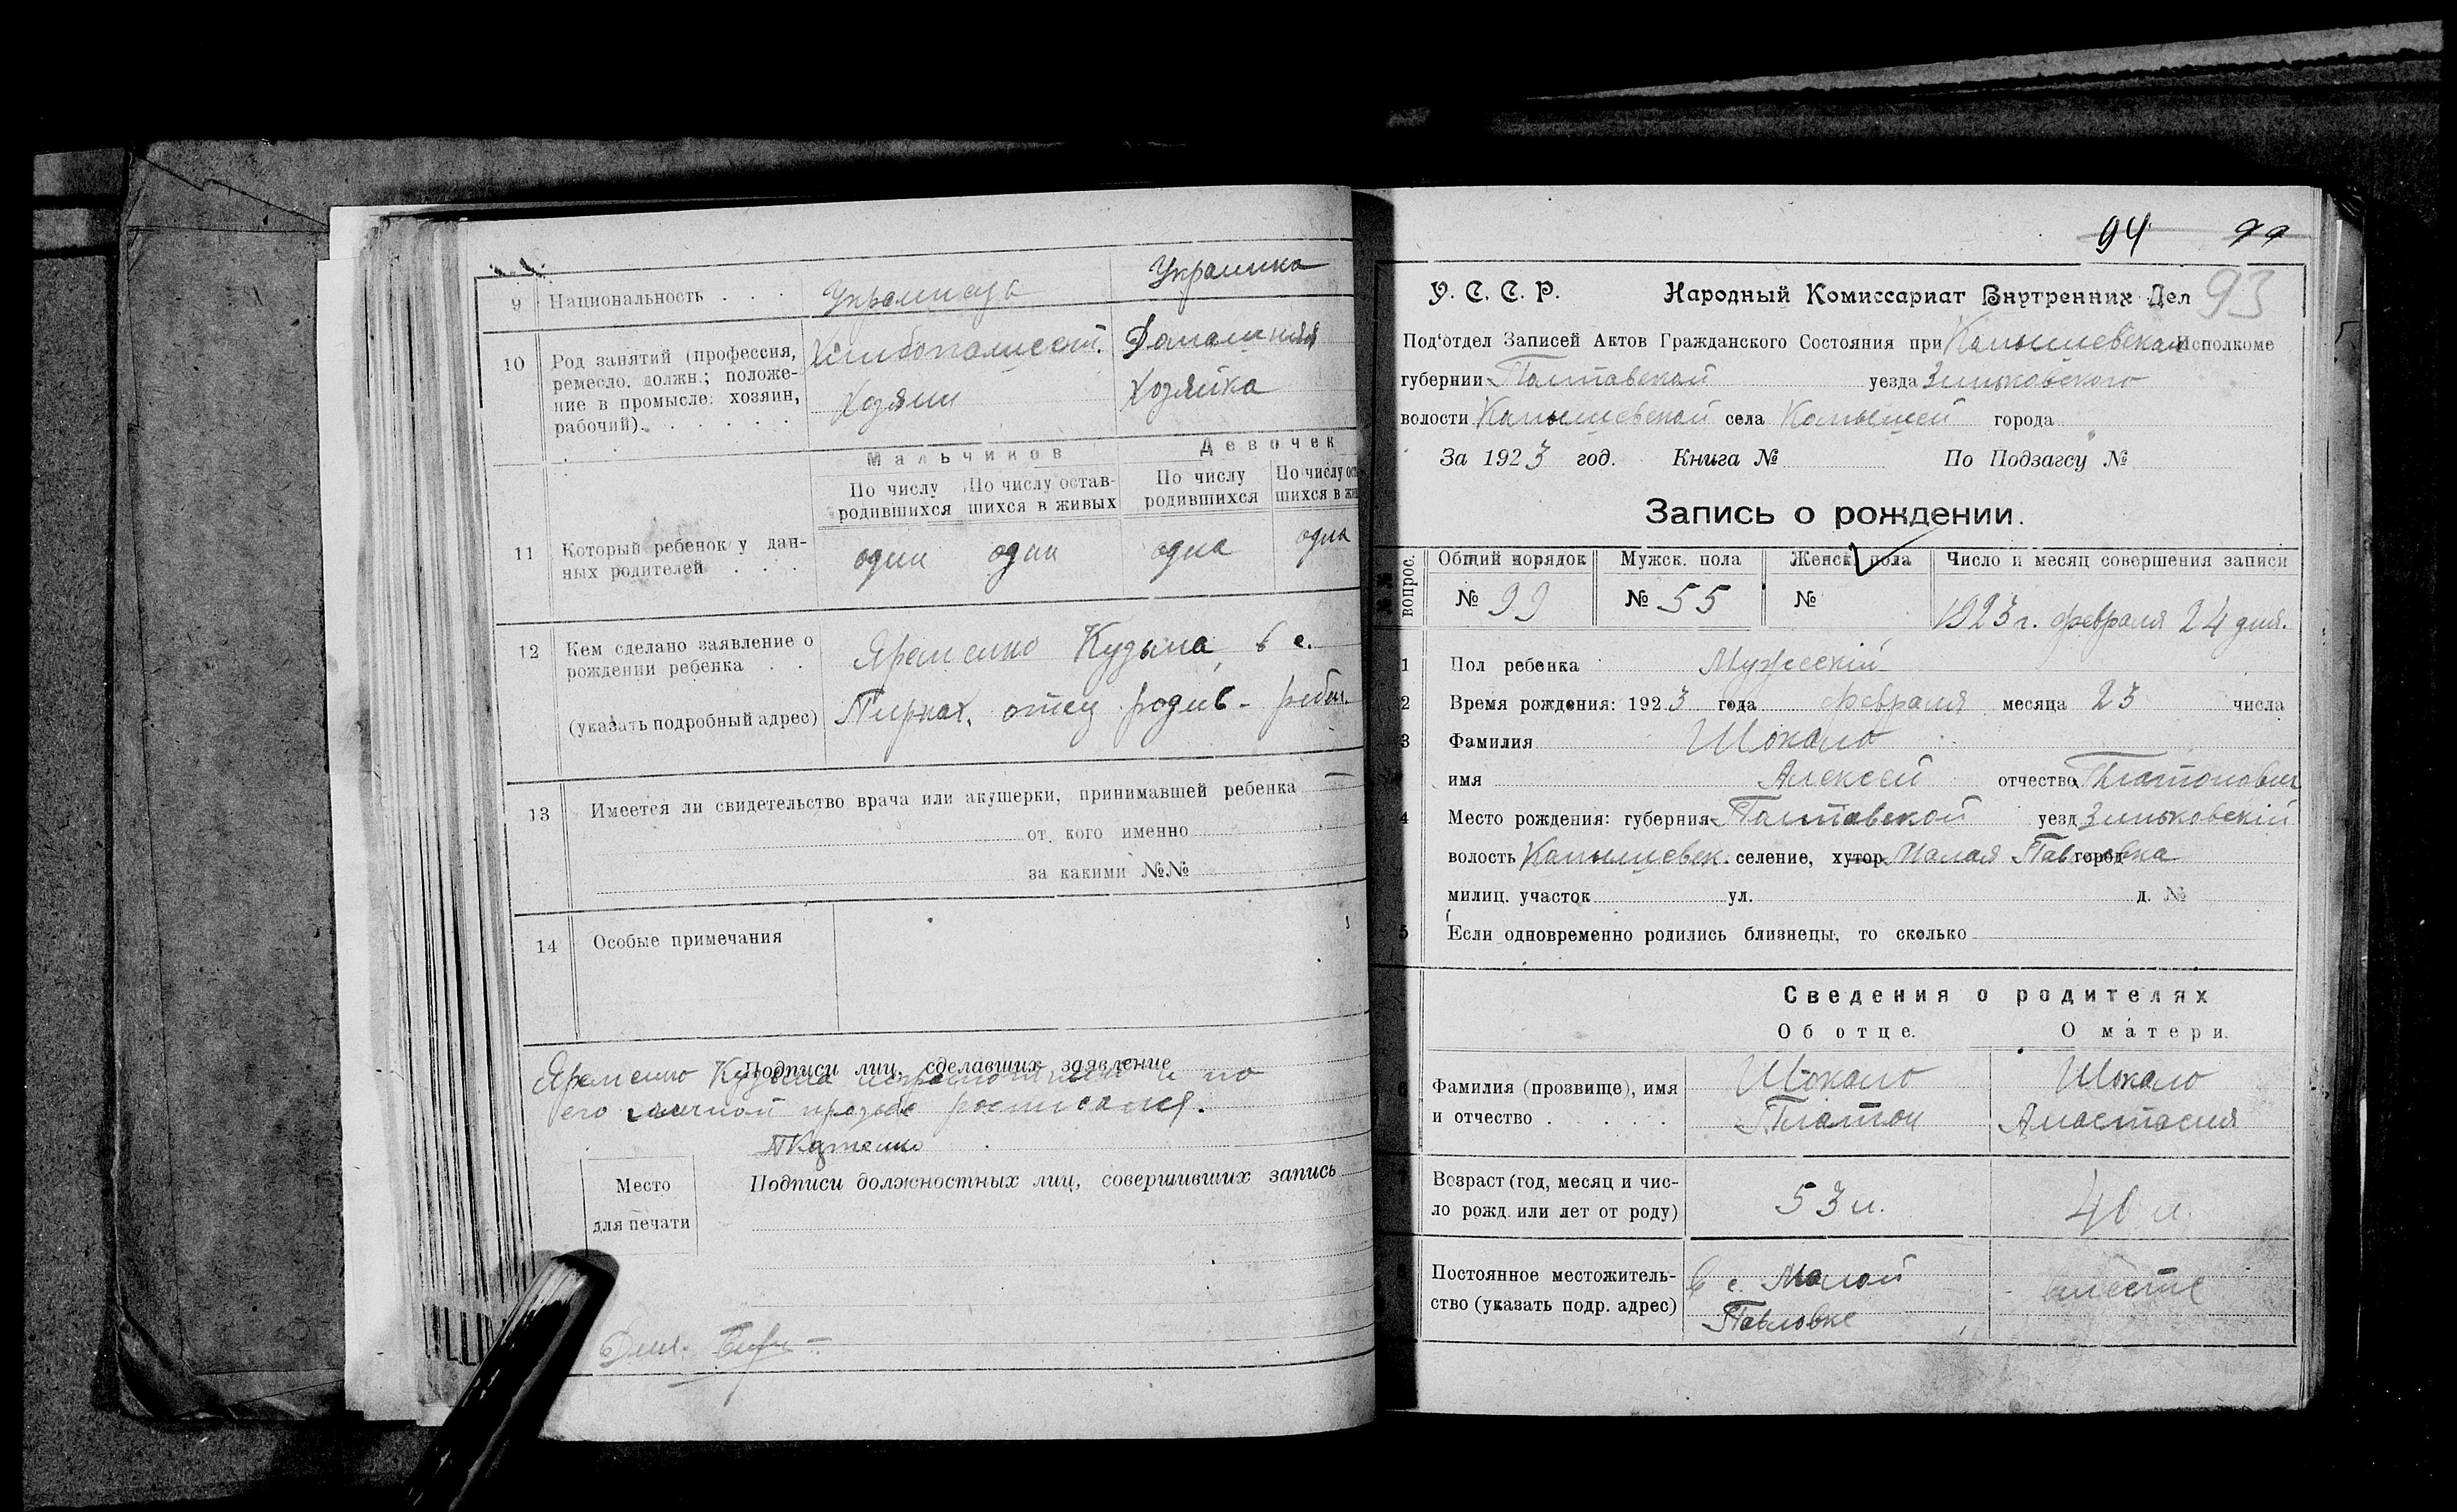 9 Национальность . . . Украинец Украинка
10 Род занятий (профессия, ремесло, должн.; положение в промысле: хозяин, рабочий). . . . . .
Хлебопашест. Домашняя
Хозяин Хозяйка
Мальчиков Девочек
По числу родившихся По числу оставшихся в живых По числу родившихся
11 Который ребенок у данных родителей . . .
один один одна одна
12 Кем сделано заявление о рождении ребенка . .
(указать подробный адрес)
Яременко Кузьма, в с.
Пирках, отец родив- ребен.
13 Имеется ли свидетельство врача или акушерки, принимавшей ребенка —
от кого именно
за какими №№
14 Особые примечания
Подписи лиц, сделавших заявление
Яременко Кузьма неграмотный и по
его личной прозьбе росписался.
Место
для печати
Подписи должностных лиц, совершивших запись
94 99
93
У. С. С. Р. Народный Комиссариат Внутренних Дел
Под'отдел Записей Актов Гражданского Состояния при Камышевском Исполкоме
губернии Полтавской уезда Зиньковского
волости Камышевской села Камышей города
За 1923 год. Книга № По Подзагсу №
Запись о рождении.
вопрос. Общий порядок Мужск. пола Женск. пола Число и месяц совершения записи
№ 99 № 55 № 1923 г. февраля 24 дня.
1 Пол ребенка Мужескій
2 Время рождения: 1923 года февраля месяца 23 числа
3 Фамилия Шокало
имя Алексей отчество Платонович
4 Место рождения: губерния Полтавской уезд Зиньковскій
волость Камышевск. селение, хутор Малая Павловка город
милиц. участок ул. д. №
5 Если одновременно родились близнецы, то сколько
Сведения о родителях
Об отце. О матери.
Фамилия (прозвище), имя и отчество . . . .
Шокало Шокало
Платон Анастасия
Возраст (год, месяц и число рожд. или лет от роду)
53 л.
Постоянное местожительство (указать подр. адрес)
В с. Малой вместе
Павловке